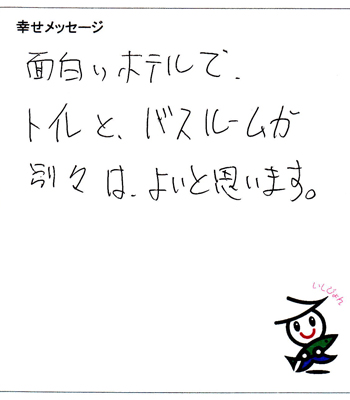 幸せメッセージ
面白いホテルで、
トイレと、バスルームが
別々は、よいと思います。
いしぴょん